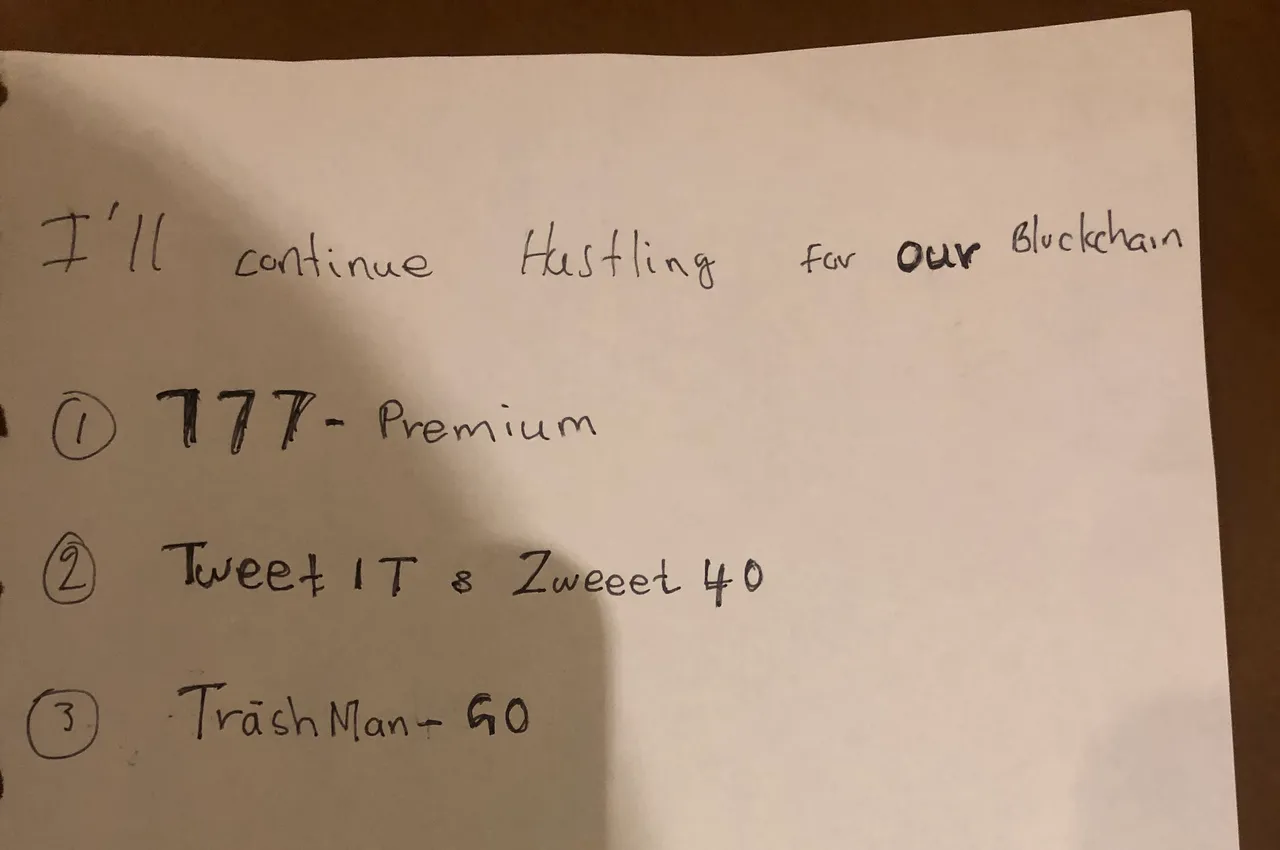 I'll continue Hustling for our Blockchain
① 777- Premium
② Tweet IT & Zweeet 40
③ TrashMan- GO